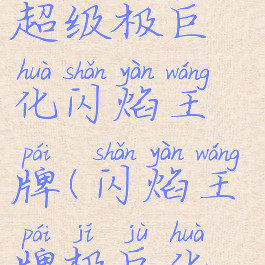 超级极巨
huà shǎn yàn wáng
化闪焰王
pái shǎn yàn wáng
牌(闪焰王
pái jí jù huà
牌极巨化